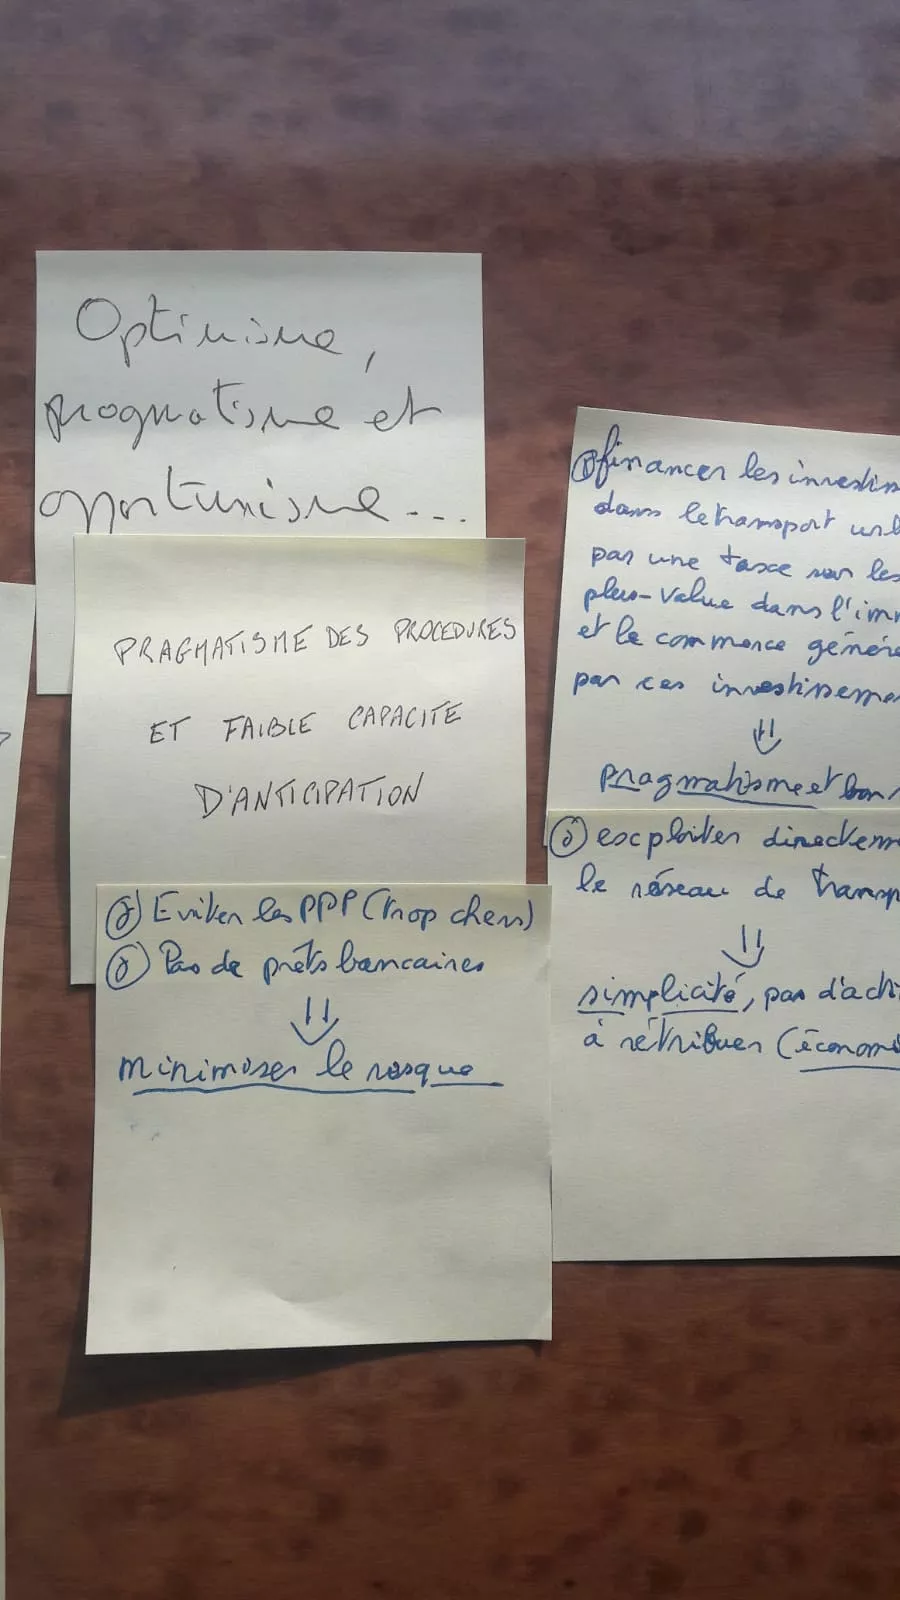 Optimisme,
pragmatisme et
opportunisme...
PRAGMATISME DES PROCEDURES
ET FAIBLE CAPACITE
D'ANTICIPATION
Eviter les PPP (trop chers)
Pas de prêts bancaires
⇓
minimiser le risque
financer les investis
dans le transport urb
par une taxe sur les
plus-value dans l'imm
et le commerce généré
par ces investissemen
⇓
pragmatisme et bon
exploiter directem
le réseau de transp
⇓
simplicité, pas d'acti
à rétribuer (économi